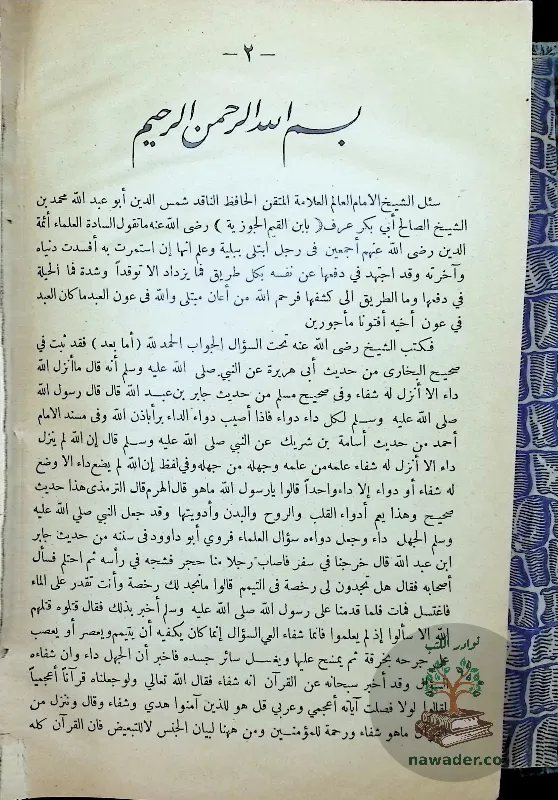 — ٢ —
بسم الله الرحمن الرحيم
سئل الشيخ الامام العالم العلامة المتقن الحافظ الناقد شمس الدين أبو عبد الله محمد بن
الشيخ الصالح أبي بكر عرف ( بابن القيم الجوزية ) رضى الله عنه ما تقول السادة العلماء أئمة
الدين رضى الله عنهم أجمعين فى رجل ابتلى ببلية وعلم انها إن استمرت به أفسدت دنياه
وآخرته وقد اجتهد في دفعها عن نفسه بكل طريق فما يزداد الا توقداً وشدة فما الحيلة
فى دفعها وما الطريق الى كشفها فرحم الله من أعان مبتلى والله فى عون العبد ما كان العبد
في عون أخيه أفتونا مأجورين
فكتب الشيخ رضى الله عنه تحت السؤال الجواب الحمد لله ( أما بعد ) فقد ثبت في
صحيح البخارى من حديث أبى هريرة عن النبي صلى الله عليه وسلم أنه قال ما أنزل الله
داء الا أنزل له شفاء وفى صحيح مسلم من حديث جابر بن عبد الله قال قال رسول الله
صلى الله عليه وسلم لكل داء دواء فاذا أصيب دواء الداء برأ باذن الله وفى مسند الامام
أحمد من حديث أسامة بن شريك عن النبي صلى الله عليه وسلم قال إن الله لم ينزل
داء الا أنزل له شفاء علمه من علمه وجهله من جهله وفي لفظ إن الله لم يضع داء الا وضع
له شفاء أو دواء إلا داء واحداً قالوا يا رسول الله ماهو قال الهرم قال الترمذى هذا حديث
صحيح وهذا يعم أدواء القلب والروح والبدن وأدويتها وقد جعل النبي صلى الله عليه
وسلم الجهل داء وجعل دواءه سؤال العلماء فروي أبو داوود فى سننه من حديث جابر
ابن عبد الله قال خرجنا في سفر فاصاب رجلا منا حجر فشجه في رأسه ثم احتلم فسأل
أصحابه فقال هل تجدون لى رخصة فى التيمم قالوا ما نجد لك رخصة وأنت تقدر على الماء
فاغتسل فمات فلما قدمنا على رسول الله صلى الله عليه وسلم أخبر بذلك فقال قتلوه قتلهم
الله الا سألوا إذ لم يعلموا فانما شفاء العي السؤال إنما كان يكفيه أن يتيمم ويعصر أو يعصب
على جرحه بخرقة ثم يمسح عليها ويغسل سائر جسده فاخبر أن الجهل داء وان شفاءه
وقد أخبر سبحانه عن القرآن انه شفاء فقال الله تعالي ولو جعلناه قرآناً أعجمياً
لقالوا لولا فصلت آياته أعجمي وعربي قل هو للذين آمنوا هدي وشفاء وقال وننزل من
ماهو شفاء ورحمة للمؤمنين ومن ههنا لبيان الجنس لا للتبعيض فان القرآن كله
نوادر الكتب
nawader.co